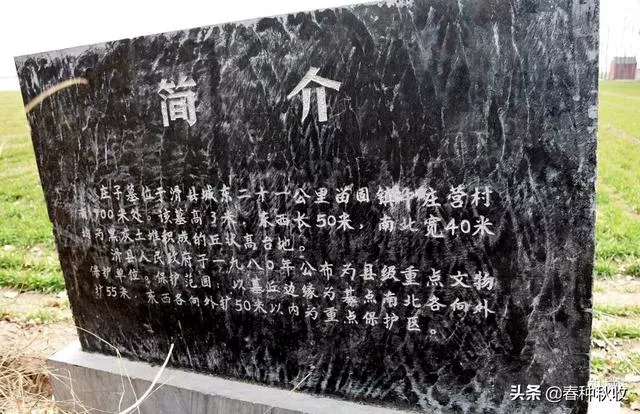 简介
庄子墓位于滑县城东二十一公里留固镇 庄营村
南700米处。该墓高3米，东西长50米，南北宽40米
均为黑灰土堆积成的丘状高台地。
滑县人民政府于一九八0年公布为县级重点文物
保护单位。保护范围：以墓丘边缘为基点南北各向外
扩55米，东西各向外扩50米以内为重点保护区。
头条@春种秋收